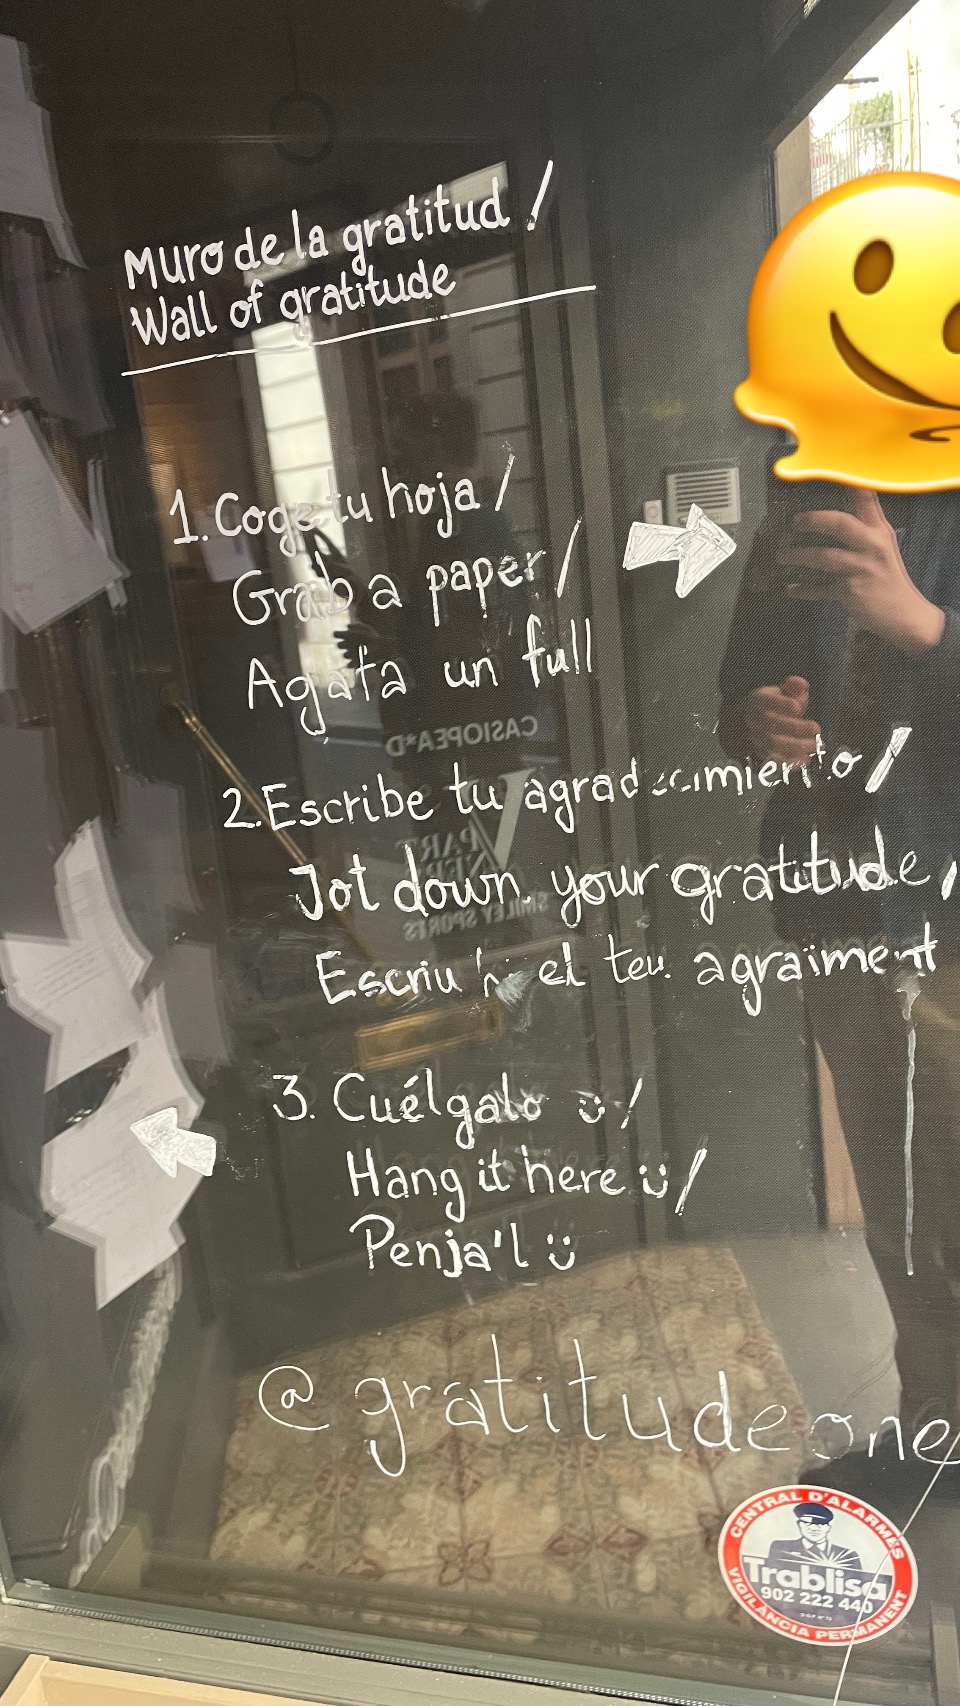 Muro de la gratitud /
Wall of gratitude
1. Coge tu hoja /
Grab a paper /
Agafa un full
CASIOPEA*D
2. Escribe tu agradecimiento /
PART
NERS
Jot down your gratitude /
SMILEY SPORTS
Escriu el teu agraïment
3. Cuélgalo :) /
Hang it here :) /
Penja'l :)
@gratitudeone
CENTRAL D'ALARMES
Trablisa
902 222 440
VIGILÀNCIA PERMANENT